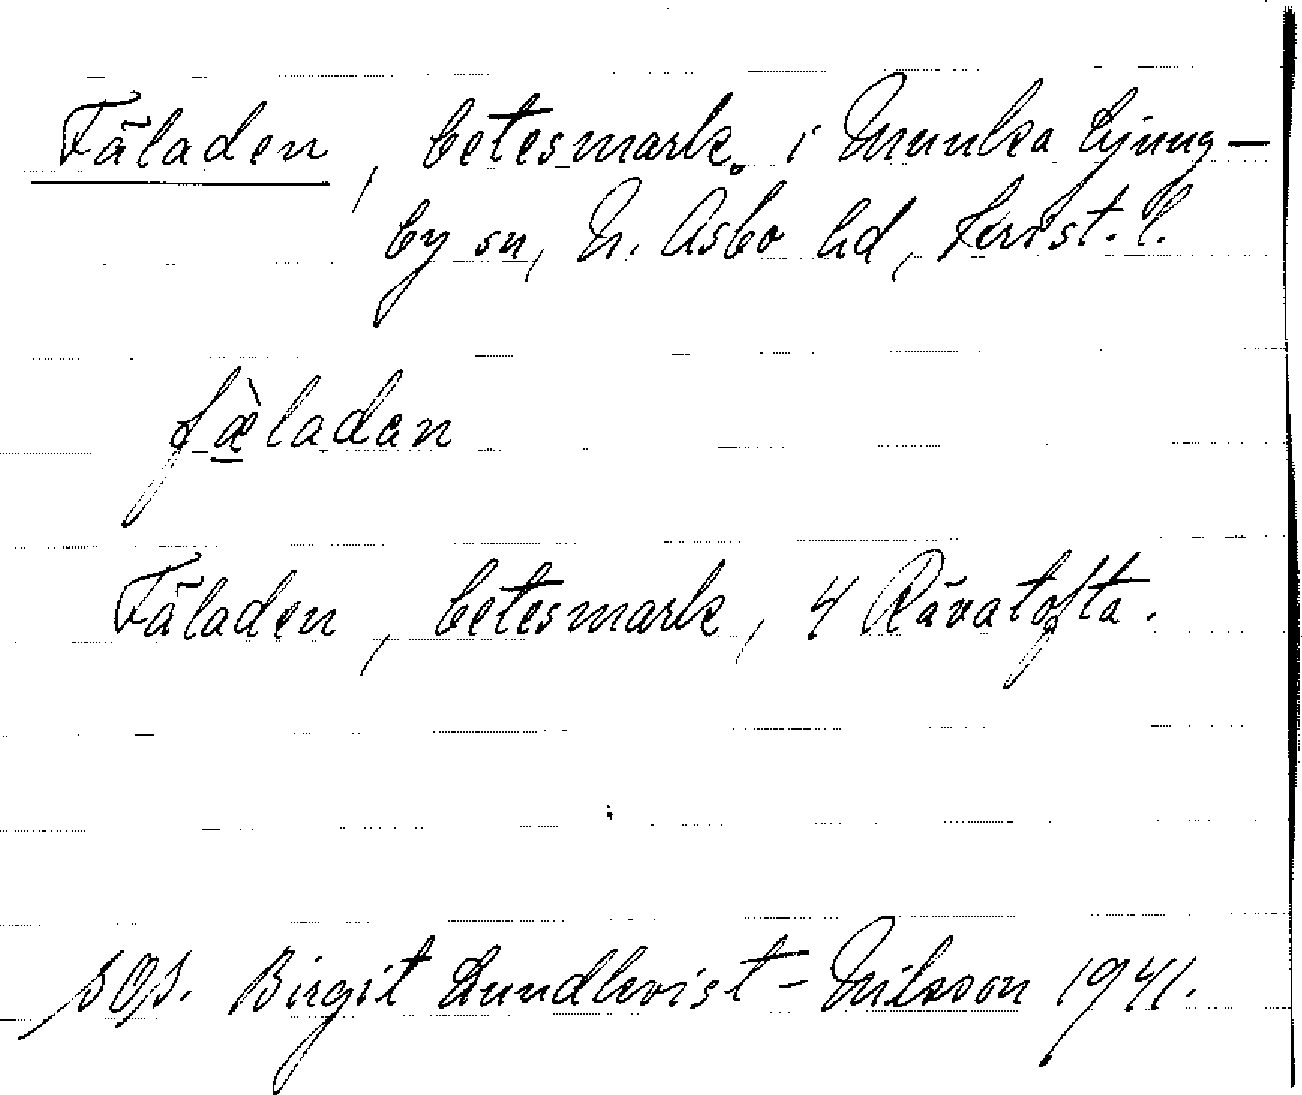 Fäladen, betesmark. i Munka Ljung-
by sn, N. Åsbo hd, Krist. l.
fæ̀ladan
Fäladen, betesmark, 4 Rävatofta.
sOs. Birgit Lundkvist-Nilsson 1941.